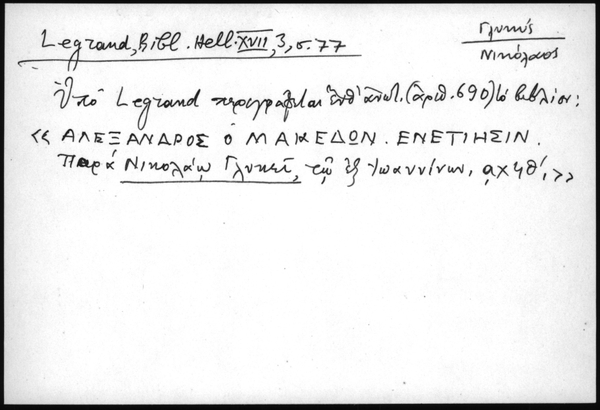 Γλυκύς
Νικόλαος
Legrand, Bibl. Hell. XVII, 3, σ. 77
Ὑπό Legrand περιγράφεται ἔνθ' ἀνωτ. (ἀριθ. 690) τό βιβλίον:
<< ΑΛΕΞΑΝΔΡΟΣ Ο ΜΑΚΕΔΩΝ. ΕΝΕΤΙΗΣΙΝ.
Παρά Νικολάῳ Γλυκεῖ, τῷ ἐξ Ἰωαννίνων, αχϟθ', >>